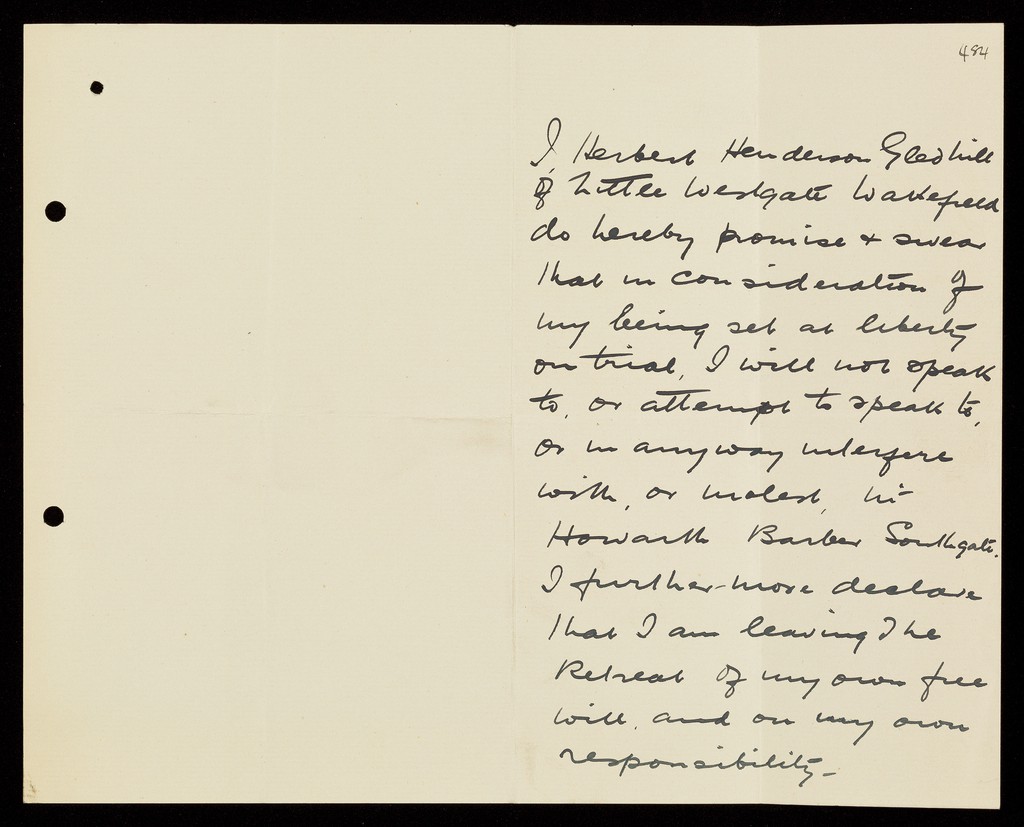 484
I, Herbert Henderson Gledhill
of Little Westgate Wakefield
do hereby promise + swear
that in consideration of
my being set at liberty
on trial, I will not speak
to, or attempt to speak to,
or in anyway interfere
with, or molest, Mr
Howarth Barber Southgate.
I further-more declare
that I am leaving The
Retreat of my own free
will, and on my own
responsibility-